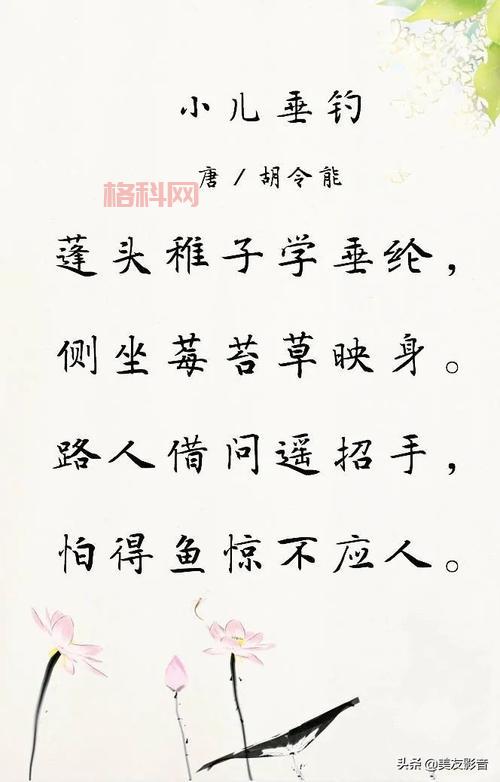 小儿垂钓
唐/胡令能
格科网
蓬头稚子学垂纶，
侧坐莓苔草映身。
路人借问遥招手，
怕得鱼惊不应人。
头条@美友影音